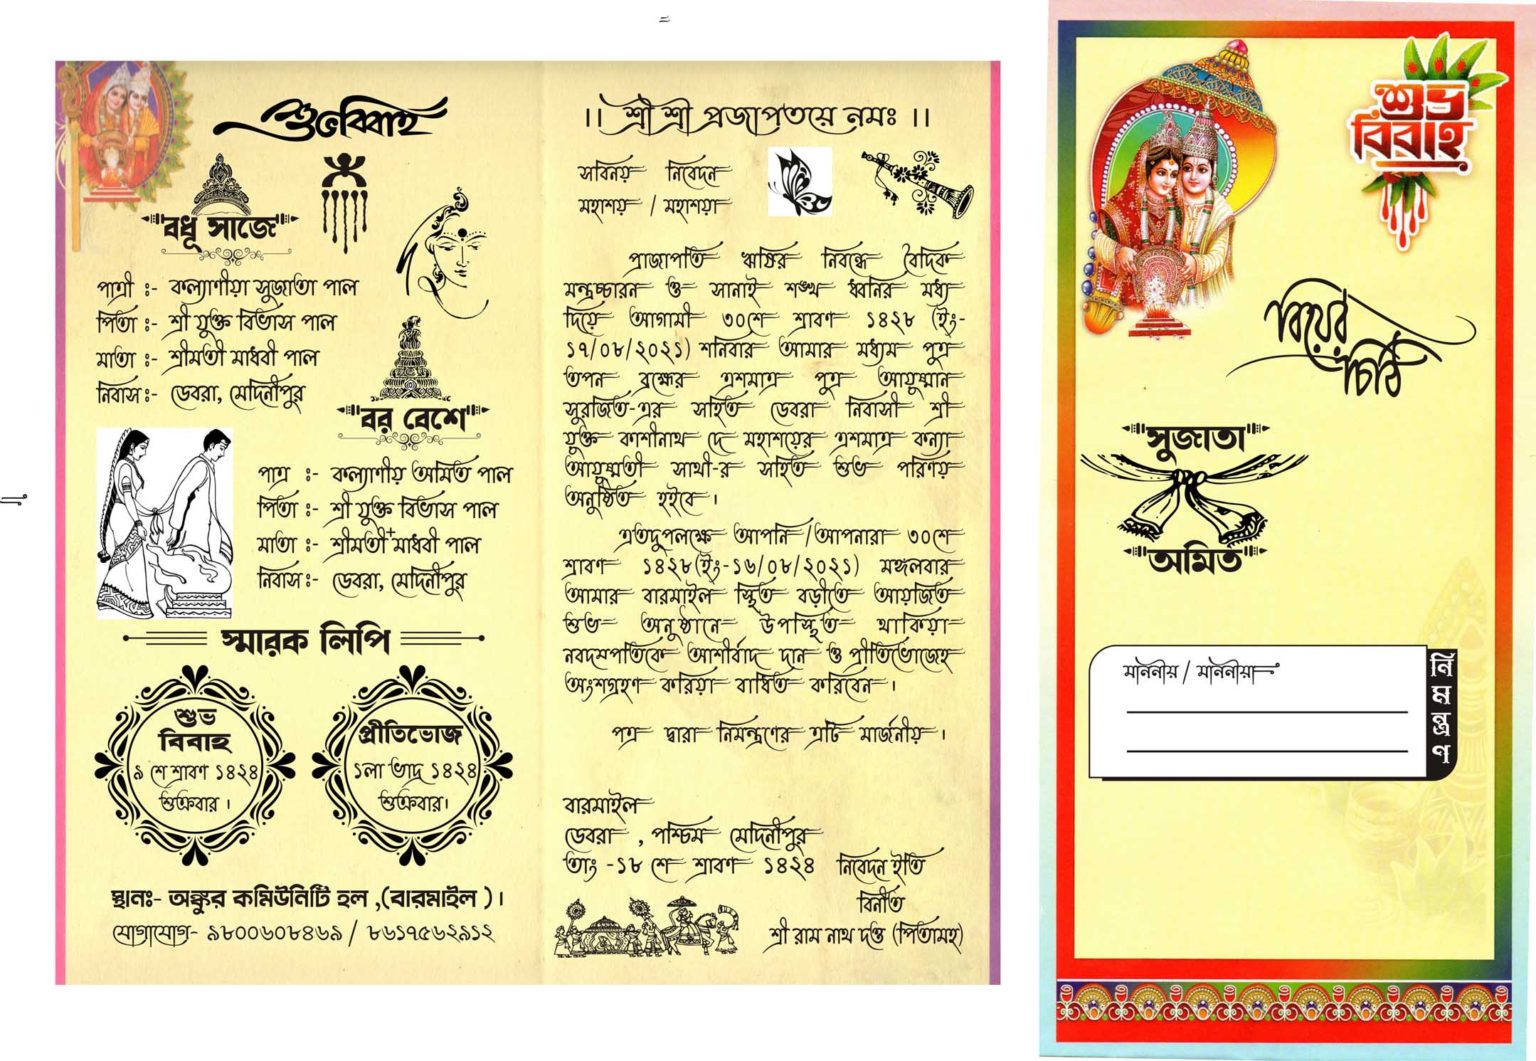 শুভবিবাহ
বধূ সাজে
পাত্রী :- কল্যাণীয়া সুজাতা পাল
পিতা :- শ্রী যুক্ত বিভাস পাল
মাতা :- শ্রীমতী মাধবী পাল
নিবাস:- ডেবরা, মেদিনীপুর
বর বেশে
পাত্র :- কল্যাণীয় অমিত পাল
পিতা :- শ্রী যুক্ত বিভাস পাল
মাতা :- শ্রীমতী মাধবী পাল
নিবাস :- ডেবরা, মেদিনীপুর
স্মারক লিপি
শুভ
বিবাহ
৯ শে শ্রাবণ ১৪২৪
শুক্রবার ।
প্রীতিভোজ
১লা ভাদ্র ১৪২৪
শুক্রবার।
স্থানঃ- অঙ্কুর কমিউনিটি হল ,(বারমাইল )।
যোগাযোগ- ৯৮০০৬০৮৪৬৯ / ৮৬১৭৫৬২৯১২
।। শ্রী শ্রী প্রজাপতয়ে নমঃ ।।
সবিনয় নিবেদন
মহাশয় / মহাশয়া
প্রাজাপতি ঋষির নিবন্ধে বৈদিক
মন্ত্রচ্চারন ও সানাই শঙ্খ ধ্বনির মধ্য
দিয়ে আগামী ৩০শে শ্রাবণ ১৪২৮ (ইং-
১৭/০৮/২০২১) শনিবার আমার মধ্যম পুত্র
তপন ব্রক্ষের এশমাত্র পুত্র আয়ুষ্মান
সুরজিত-এর সহিত ডেবরা নিবাসী শ্রী
যুক্ত কাশীনাথ দে মহাশয়ের এশমাত্র কন্যা
আয়ুষ্মতী সাথী-র সহিত শুভ পরিণয়
অনুষ্ঠিত হইবে ।
এতদুপলক্ষে আপনি /আপনারা ৩০শে
শ্রাবণ ১৪২৮(ইং-১৬/০৮/২০২১) মঙ্গলবার
আমার বারমাইল স্থিত বড়ীতে আয়জিত
শুভ অনুষ্ঠানে উপস্থিত থাকিয়া
নবদম্পতিকে আশীর্বাদ দান ও প্রীতিভোজেহ
অংশগ্রহণ করিয়া বাধিত করিবেন ।
পত্র দ্বারা নিমন্ত্রণের ত্রটি মার্জনীয় ।
বারমাইল
ডেবরা , পশ্চিম মেদিনীপুর
তাং -১৮ শে শ্রাবণ ১৪২৪ নিবেদন ইতি
বিনীত
শ্রী রাম নাথ দত্ত (পিতামহ)
শুভ
বিবাহ
বিয়ের
চিঠি
সুজাতা
অমিত
মাননীয় / মাননীয়া
নিমন্ত্রণ